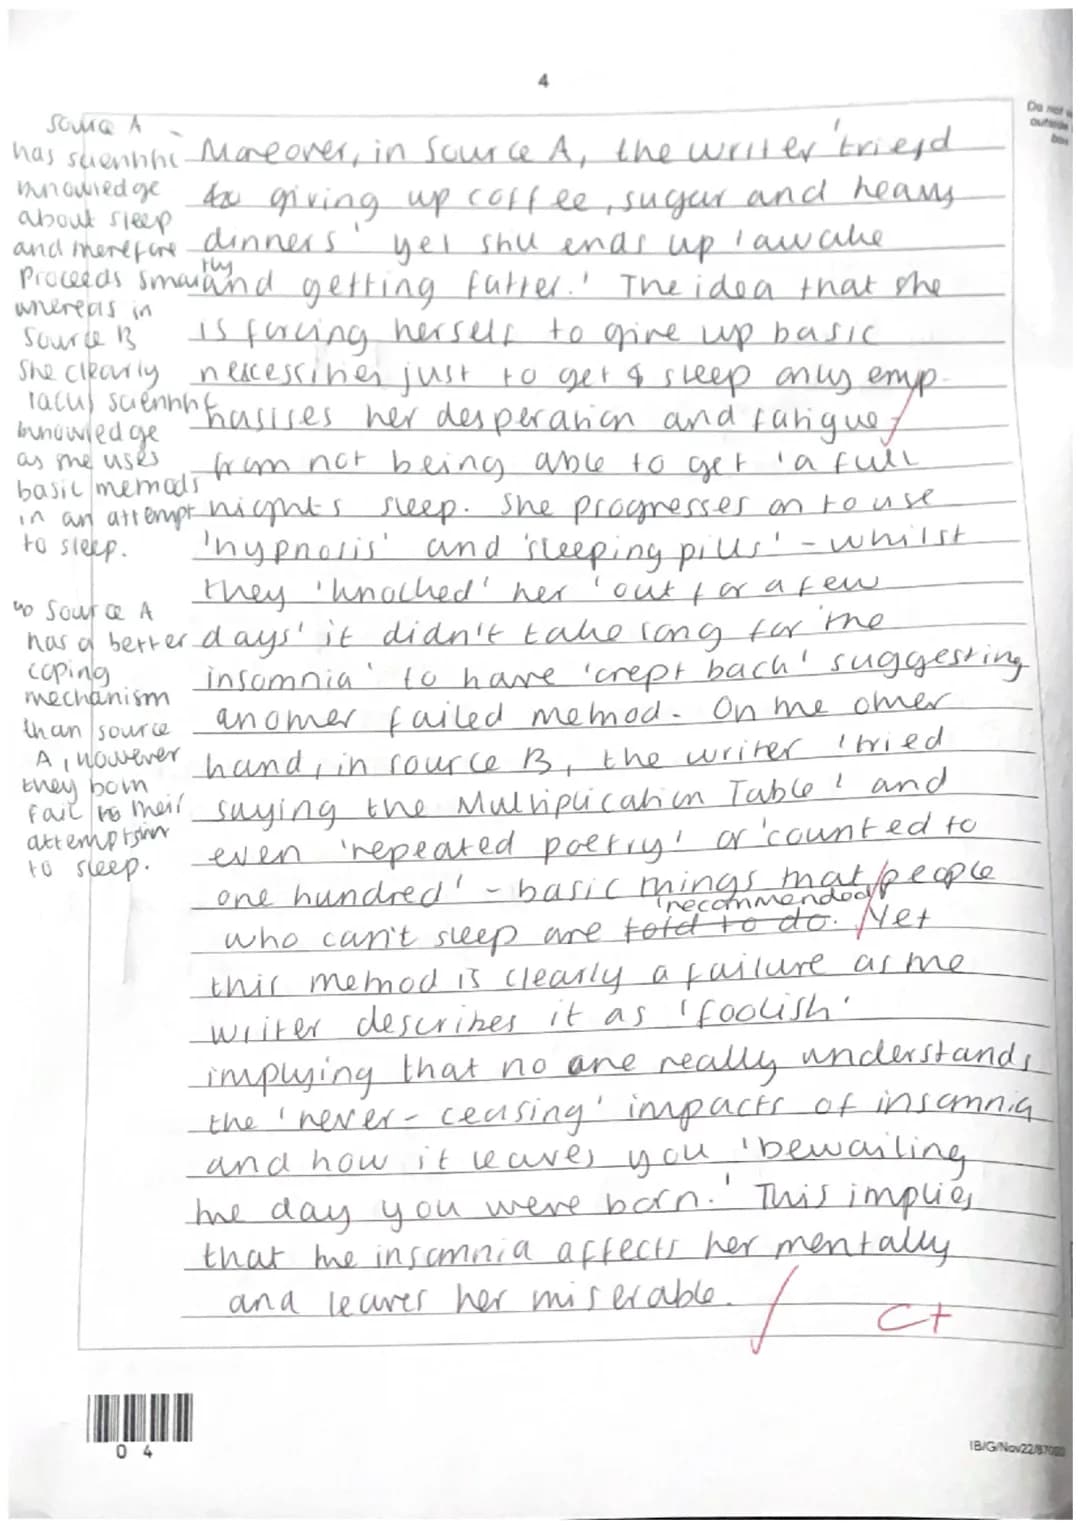 4
Do not w
outside
box
Source A
has scientific
knowledge
about sleep
and therefore
proceeds smartly
whereas in
Source B
she clearly
lacks scientific
knowledge
as she uses
basic methods
in an attempt
to sleep.
Source A
has a better
coping
mechanism
than source
A, however
they both
fail to their
attempts
to sleep.
Moreover, in Source A, the writer 'tried
to giving up coffee, sugar and heavy
dinners' yet she ends up 'awake
and getting fatter.' The idea that she
is forcing herself to give up basic
nescessities just to get a sleep only emp-
hasises her desperation and fatigue
from not being able to get 'a full
nights sleep. She progresses on to use
'hypnosis' and 'sleeping pills' - whilst
they 'knocked' her 'out for a few
days' it didn't take long for 'the
insomnia' to have 'crept back' suggesting
another failed method. On the other
hand, in source B, the writer 'tried
saying the Multiplication Table' and
even 'repeated poetry' or 'counted to
one hundred' - basic things that people
who can't sleep are told to do. 'recommended' Yet
this method is clearly a failure as the
writer describes it as 'foolish'
implying that no one really understands
the 'never-ceasing' impacts of insomnia
and how it leaves you 'bewailing
the day you were born.' This implies
that the insomnia affects her mentally
and leaves her miserable.
C+
0 4
IB/G/Nov22/8700